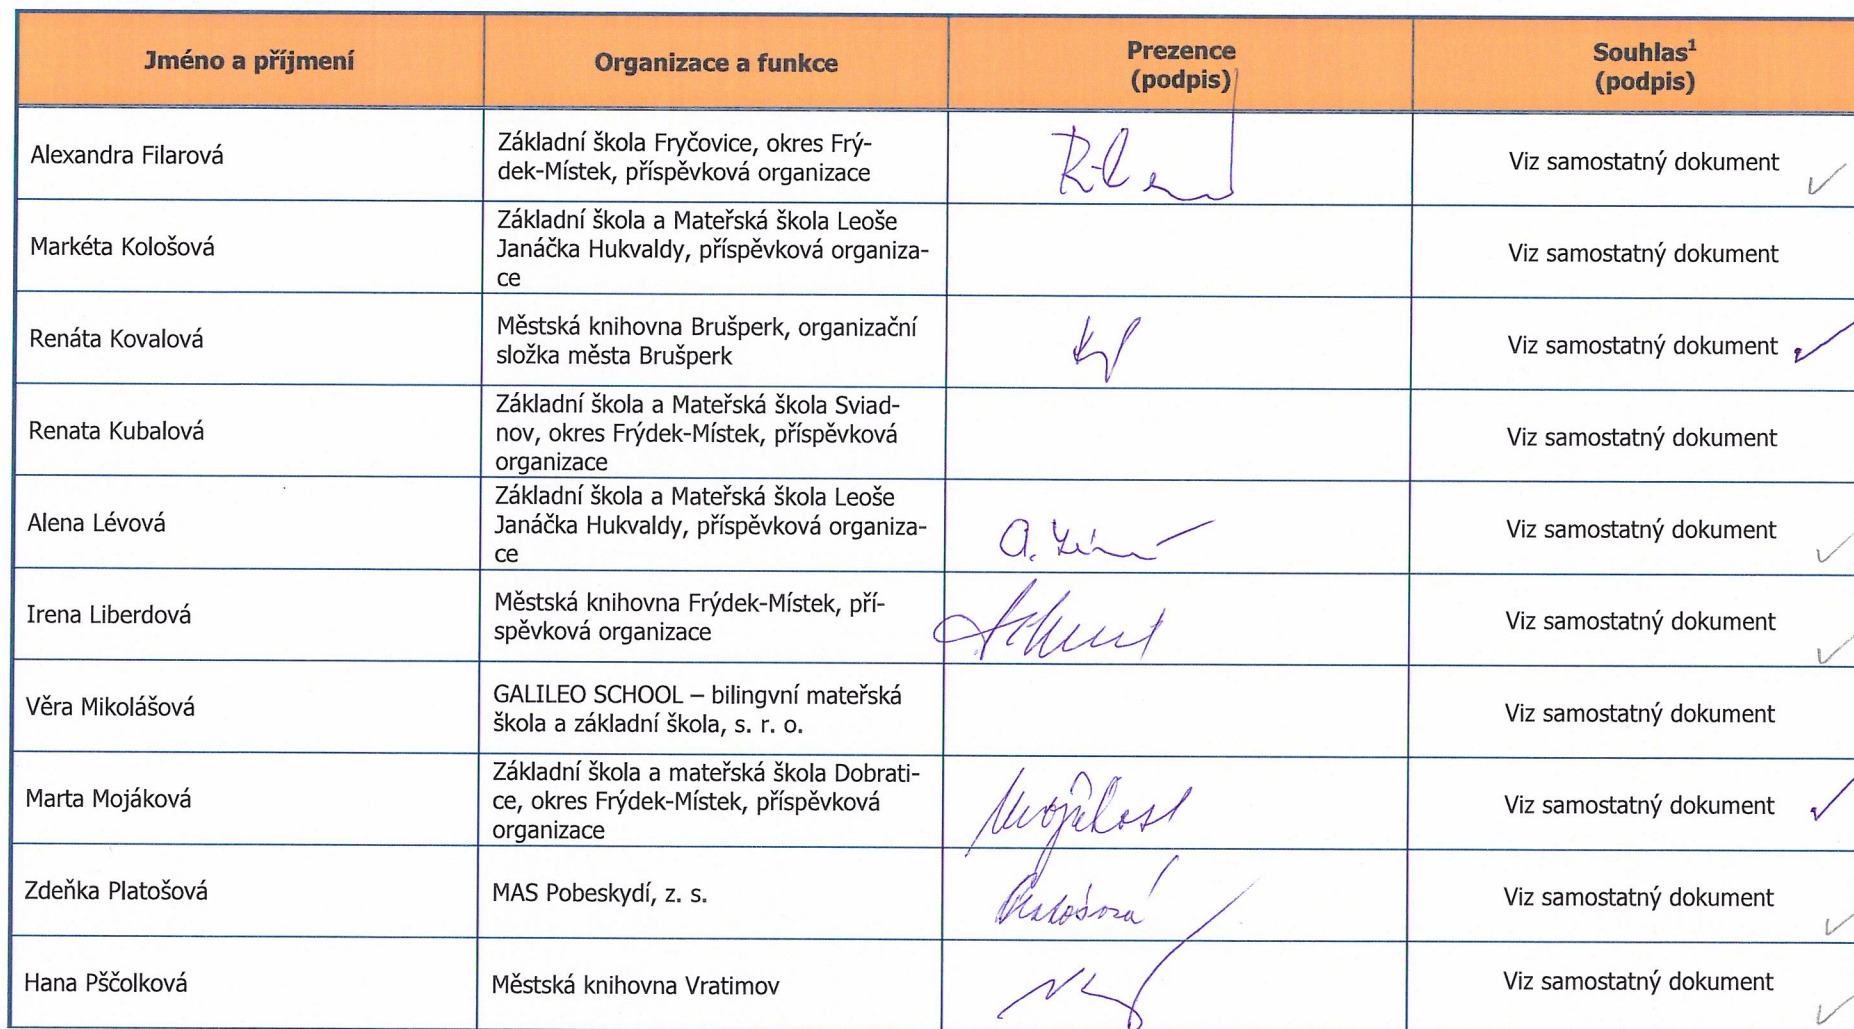 Jméno a příjmení
Organizace a funkce
Prezence
(podpis)
Souhlas¹
(podpis)
Alexandra Filarová
Základní škola Fryčovice, okres Frý-
dek-Místek, příspěvková organizace
Viz samostatný dokument
Markéta Kološová
Základní škola a Mateřská škola Leoše
Janáčka Hukvaldy, příspěvková organiza-
ce
Viz samostatný dokument
Renáta Kovalová
Městská knihovna Brušperk, organizační
složka města Brušperk
Viz samostatný dokument
Renata Kubalová
Základní škola a Mateřská škola Sviad-
nov, okres Frýdek-Místek, příspěvková
organizace
Viz samostatný dokument
Alena Lévová
Základní škola a Mateřská škola Leoše
Janáčka Hukvaldy, příspěvková organiza-
ce
Viz samostatný dokument
Irena Liberdová
Městská knihovna Frýdek-Místek, pří-
spěvková organizace
Viz samostatný dokument
Věra Mikolášová
GALILEO SCHOOL – bilingvní mateřská
škola a základní škola, s. r. o.
Viz samostatný dokument
Marta Mojáková
Základní škola a mateřská škola Dobrati-
ce, okres Frýdek-Místek, příspěvková
organizace
Viz samostatný dokument
Zdeňka Platošová
MAS Pobeskydí, z. s.
Platošová
Viz samostatný dokument
Hana Pščolková
Městská knihovna Vratimov
Viz samostatný dokument